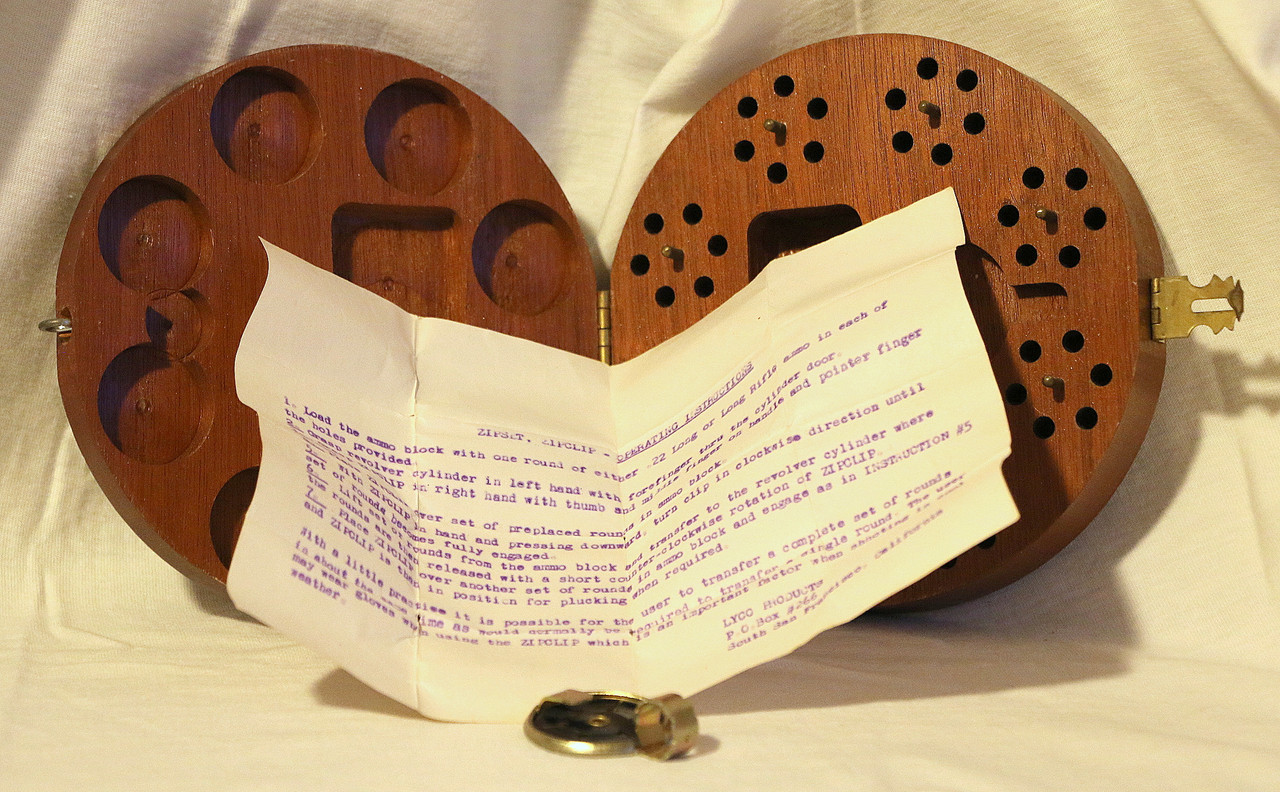 ZIPSET, ZIPCLIP - OPERATING INSTRUCTIONS
1. Load the ammo block with one round of either .22 Long or Long Rifle ammo in each of
the holes provided.
2. Grasp revolver cylinder in left hand with forefinger thru the cylinder door.
ZIPCLIP in right hand with thumb and middle finger on handle and pointer finger
5. With ZIPCLIP over set of preplaced rounds in ammo block.
in hand and pressing downward, turn clip in clockwise direction until
set of rounds becomes fully engaged.
6. Lift rounds from the ammo block and transfer to the revolver cylinder where
the rounds are then released with a short counter-clockwise rotation of ZIPCLIP.
7. Place ZIPCLIP over another set of rounds in ammo block and engage as in INSTRUCTION #5
and ZIPCLIP is then in position for plucking when required.
With a little practise it is possible for the user to transfer a complete set of rounds
in about the same time as would normally be required to transfer a single round. The user
may wear gloves when using the ZIPCLIP which is an important factor when shooting in cold
weather.
LYCO PRODUCTS
P.O. Box #266
South San Francisco, California